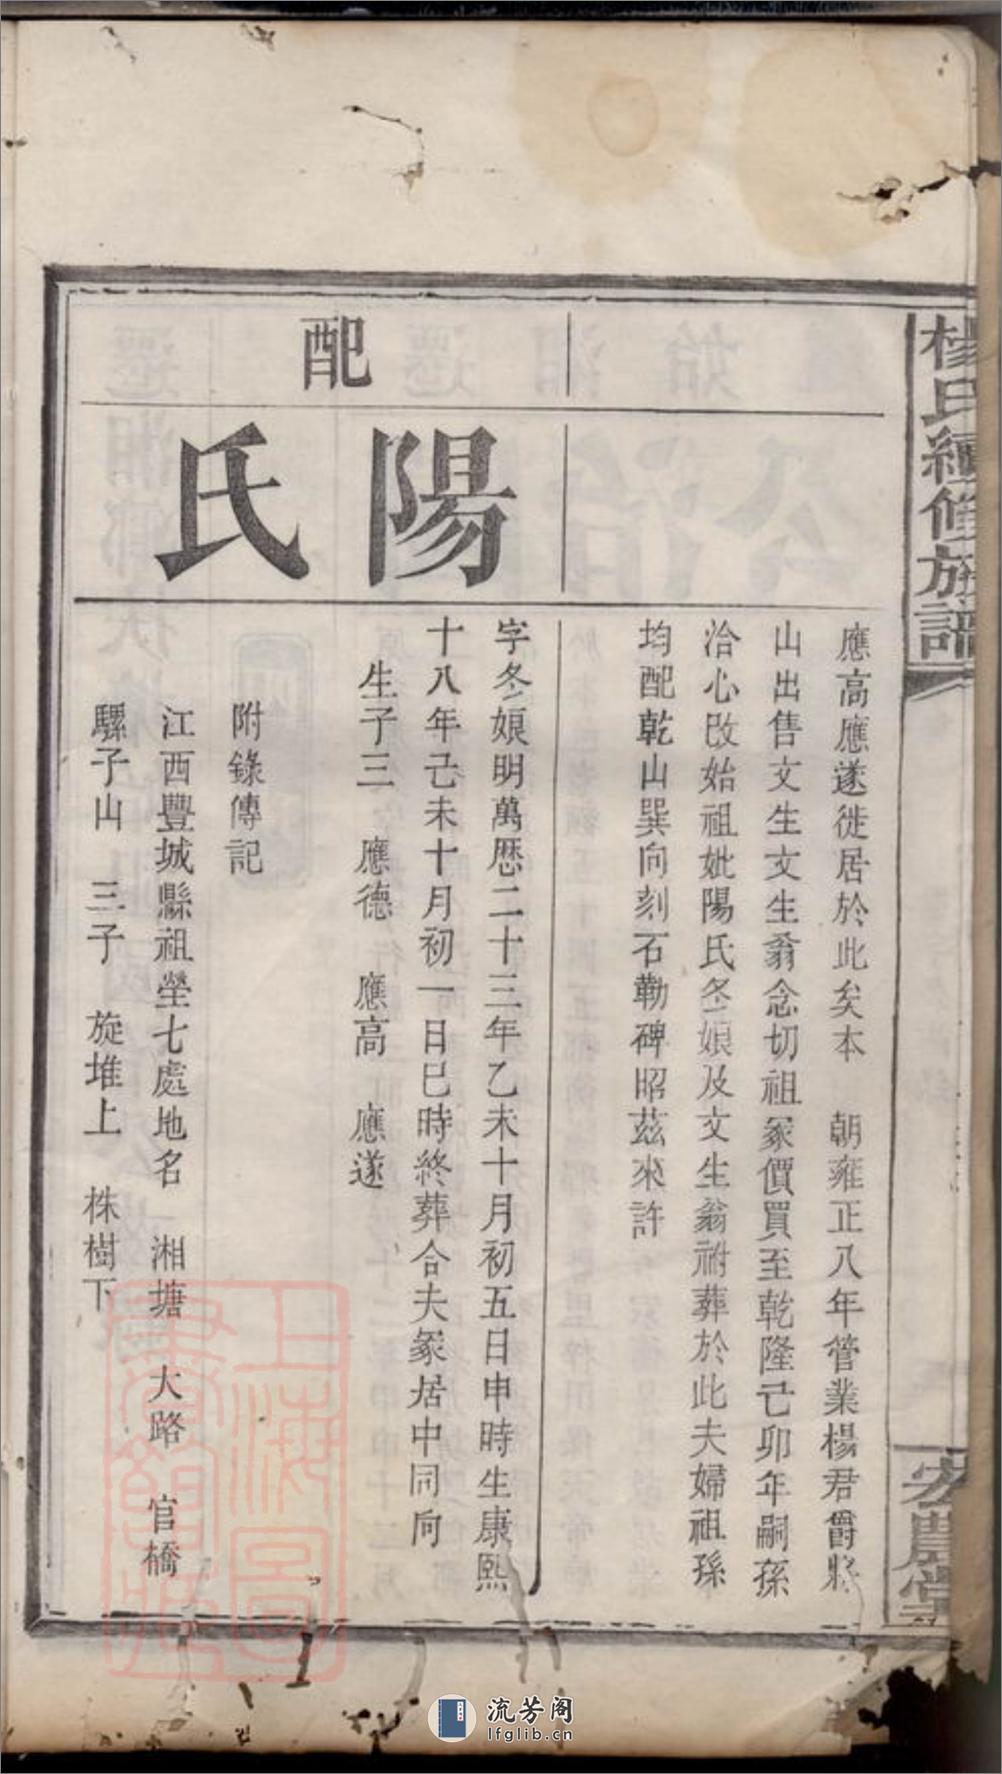 楊氏續修族譜
宏農堂
應高應遂徙居於此矣本　朝雍正八年管業楊君爵將
山出售文生文生翁念切祖冢價買至乾隆己卯年嗣孫
洽心改始祖妣陽氏冬娘及文生翁祔葬於此夫婦祖孫
均配乾山巽向刻石勒碑昭茲來許
配
陽氏
字冬娘明萬歷二十三年乙未十月初五日申時生康熙
十八年己未十月初一日巳時終葬合夫冢居中同向
生子三　應德　應高　應遂
附錄傳記
江西豐城縣祖塋七處地名　湘塘　大路　官橋
騾子山　三子　旋堆上　株樹下
上海圖書館藏
流芳阁
lfglib.cn